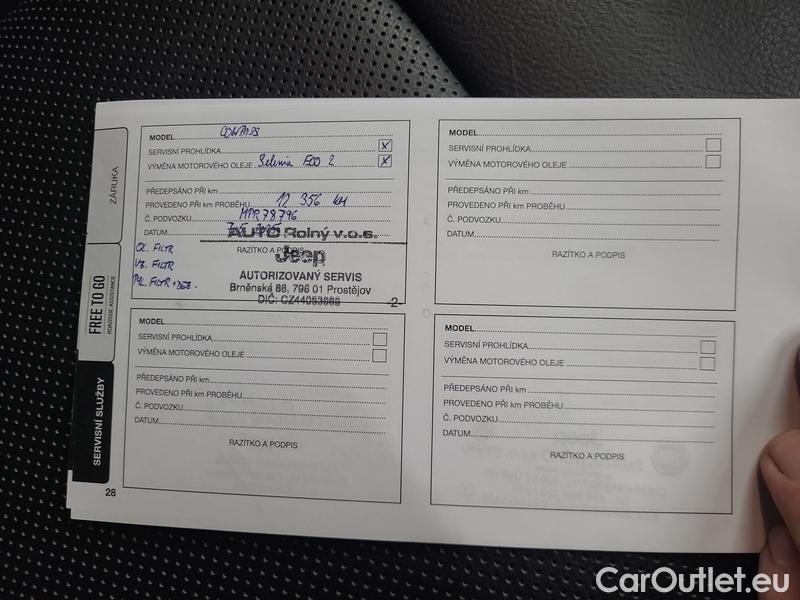 MODEL COMPASS
SERVISNÍ PROHLÍDKA X
VÝMĚNA MOTOROVÉHO OLEJE Selenia ECO 2 X
PŘEDEPSÁNO PŘI km
PROVEDENO PŘI km PROBĚHU 12 356 KM
Č. PODVOZKU MPR78796
DATUM
RAZÍTKO A PODPIS
OL. FILTR
VZ. FILTR
PYL. FILTR + DEZ.
AUTO Rolný v.o.s.
Jeep
AUTORIZOVANÝ SERVIS
Brněnská 88, 796 01 Prostějov
DIČ: CZ44053665
-2-
MODEL
SERVISNÍ PROHLÍDKA
VÝMĚNA MOTOROVÉHO OLEJE
PŘEDEPSÁNO PŘI km
PROVEDENO PŘI km PROBĚHU
Č. PODVOZKU
DATUM
RAZÍTKO A PODPIS
MODEL
SERVISNÍ PROHLÍDKA
VÝMĚNA MOTOROVÉHO OLEJE
PŘEDEPSÁNO PŘI km
PROVEDENO PŘI km PROBĚHU
Č. PODVOZKU
DATUM
RAZÍTKO A PODPIS
MODEL
SERVISNÍ PROHLÍDKA
VÝMĚNA MOTOROVÉHO OLEJE
PŘEDEPSÁNO PŘI km
PROVEDENO PŘI km PROBĚHU
Č. PODVOZKU
DATUM
RAZÍTKO A PODPIS
ZÁRUKA
FREE TO GO
ROADSIDE ASSISTANCE
SERVISNÍ SLUŽBY
28
CarOutlet.eu